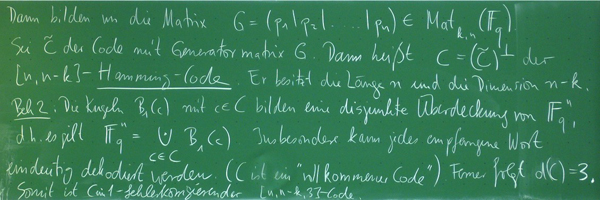 Dann bilden wir die Matrix G = (p₁|p₂|....|pₙ) ∈ Mat_{k,n}(𝔽_q).
Sei C̃ der Code mit Generatormatrix G. Dann heißt C = (C̃)^⊥ der
[n,n-k]-Hamming-Code. Er besitzt die Länge n und die Dimension n-k.
Beh 2. Die Kugeln B₁(c) mit c∈C bilden eine disjunkte Überdeckung von 𝔽_q^n,
d.h. es gilt 𝔽_q^n = ⋃̇_{c∈C} B₁(c) Insbesondere kann jedes empfangene Wort
eindeutig dekodiert werden. (C ist ein "vollkommener Code") Ferner folgt d(C)=3.
Somit ist C ein 1-fehlerkorrigierender [n,n-k,3]-Code.